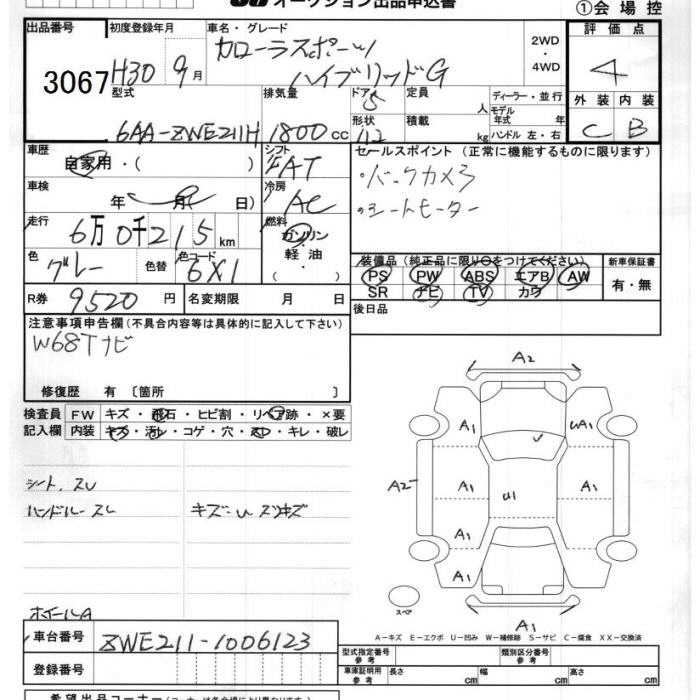 オークション出品申込書
①会場控
出品番号 3067
初度登録年月 H30 9月
車名・グレード カローラスポーツ ハイブリッドG
2WD・4WD
評価点 4
型式 6AA-ZWE211H
排気量 1800cc
ドア 5
形状
定員 人
積載 kg
ディーラー・並行
モデル年式 年式
ハンドル 左・右
外装 C
内装 B
車歴 自家用・( )
シフト FAT
セールスポイント (正常に機能するものに限ります)
・バックカメラ
・シートヒーター
車検 年 月( 日)
冷房 AC
走行 6万0千215km
燃料 ガソリン・軽油・( )
色 グレー
色替
色コード 6X1
R券 9520円
名変期限 月 日
装備品 (純正品に限り○をつけてください)
PS PW ABS エアB AW
SR ナビ TV カワ
新車保証書 有・無
後日品
注意事項申告欄(不具合内容等は具体的に記入して下さい)
W68Tナビ
修復歴 有 〔箇所 〕
検査員記入欄
FW キズ・飛石・ヒビ割・リペア跡・×要
内装 キズ・汚レ・コゲ・穴・スレ・キレ・破レ
シート、スレ
ハンドルースレ
キズ・U スリキズ
ホイールA
A2
A1
UA1
A1
A2
A1
U1
A1
A1
A1
A1
スペア
A1
A-キズ E-エクボ U-凹み W-補修跡 S-サビ C-腐食 XX-交換済
車台番号 ZWE211-1006123
登録番号
型式指定番号 参考
類別区分番号 参考
車庫証明用 参考 長さ cm 幅 cm 高さ cm
希望出品コーナー